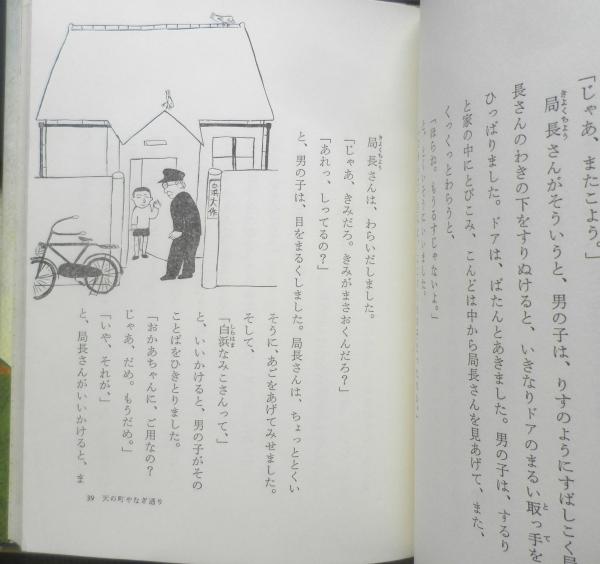 「じゃあ、またこよう。」
きよくちよう
局長さんがそういうと、男の子は、りすのようにすばしこく局
長さんのわきの下をすりぬけると、いきなりドアのまるい取っ手を
と て
ひっぱりました。ドアは、ばたんとあきました。男の子は、するり
と家の中にとびこみ、こんどは中から局長さんを見あげて、また、
くっくっとわらうと、
「ほらね。もうるすじゃないよ。」
きよくちよう
局長さんは、わらいだしました。
「じゃあ、きみだろ。きみがまさおくんだろ?」
「あれっ、しってるの?」
と、男の子は、目をまるくしました。局長さんは、ちょっととくい
そうに、あごをあげてみせました。
そして、
しらはま
「白浜なみこさんって、」
と、いいかけると、男の子がその
ことばをひきとりました。
「おかあちゃんに、ご用なの?
じゃあ、だめ。もうだめ。」
「いや、それが、」
と、局長さんがいいかけると、ま
白浜大作
39 天の町やなぎ通り